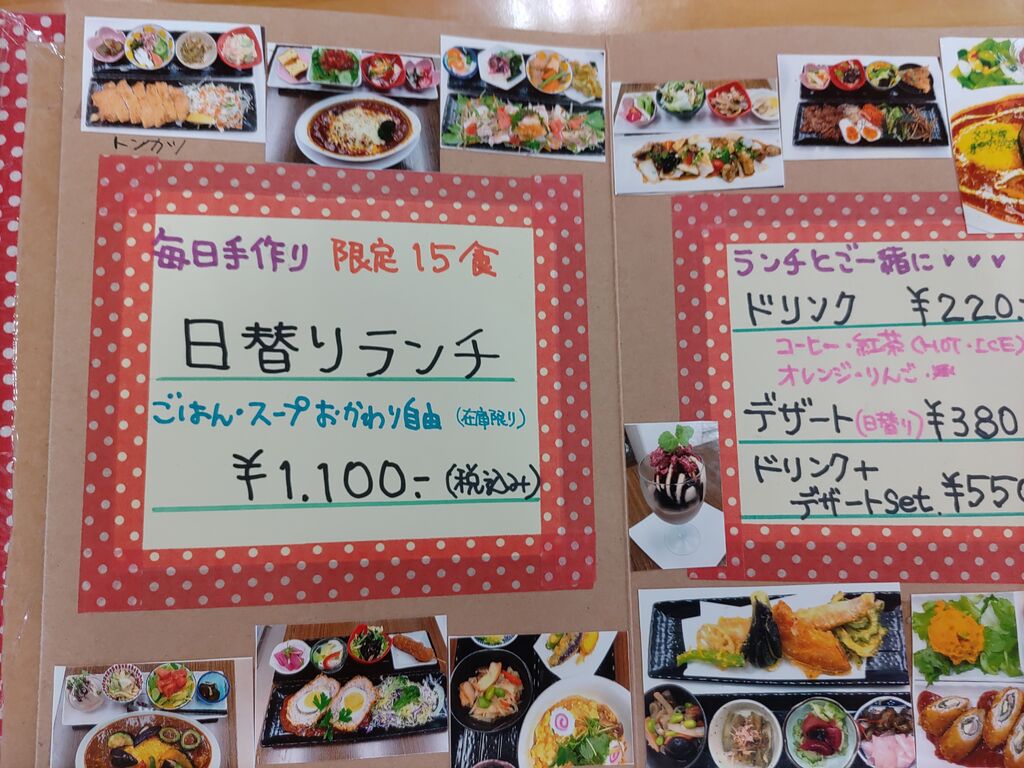 トンカツ
毎日手作り 限定15食
日替りランチ
ごはん・スープおかわり自由 (在庫限り)
¥1.100.- (税込み)
ランチとご一緒に♥♥♥
ドリンク ¥220.-
コーヒー・紅茶(HOT・ICE)
オレンジ・りんご・
デザート(日替り)¥380
ドリンク+
デザートSet. ¥550